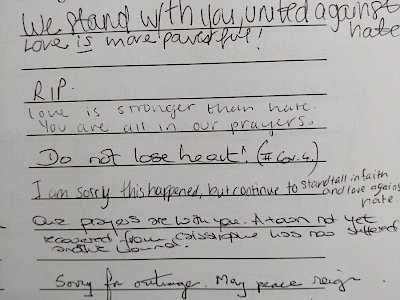 We stand with you, united against
hate
Love is more powerful!
RIP.
Love is stronger than hate.
You are all in our prayers.
Do not lose heart! (II Cor. 4.)
I am sorry this happened, but continue to stand tall in faith
and love against
hate.
Our prayers are with you. A town not yet
recovered from catastrophe has now suffered
another wound.
Sorry for outrage. May peace reign